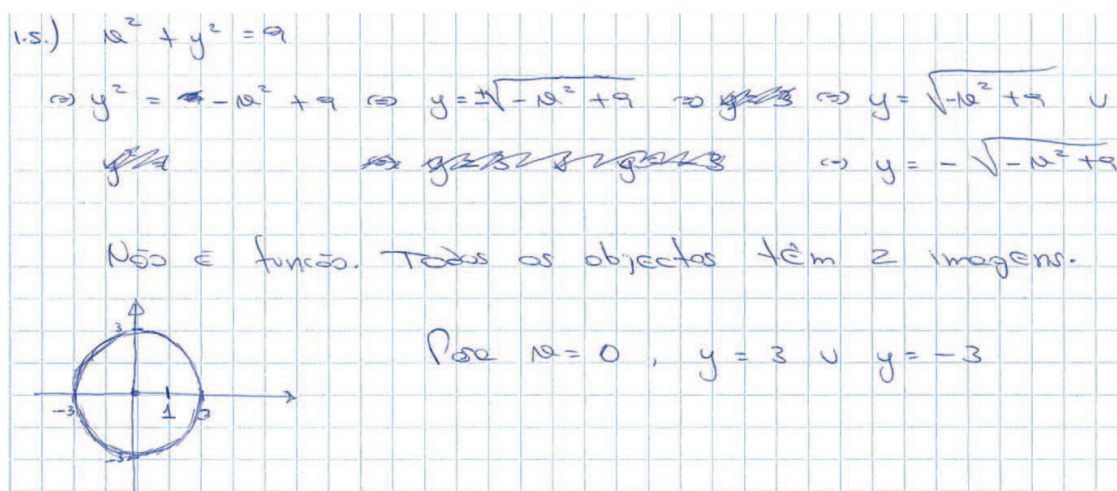 1.5.) x² + y² = 9
⇔ y² = -x² + 9 ⇔ y = ±√-x² + 9 ⇔ ⇔ y = √-x² + 9 ∪
⇔ y = -√-x² + 9
Não é função. Todos os objectos têm 2 imagens.
Para x = 0, y = 3 ∪ y = -3
3
-3 1 3
-3